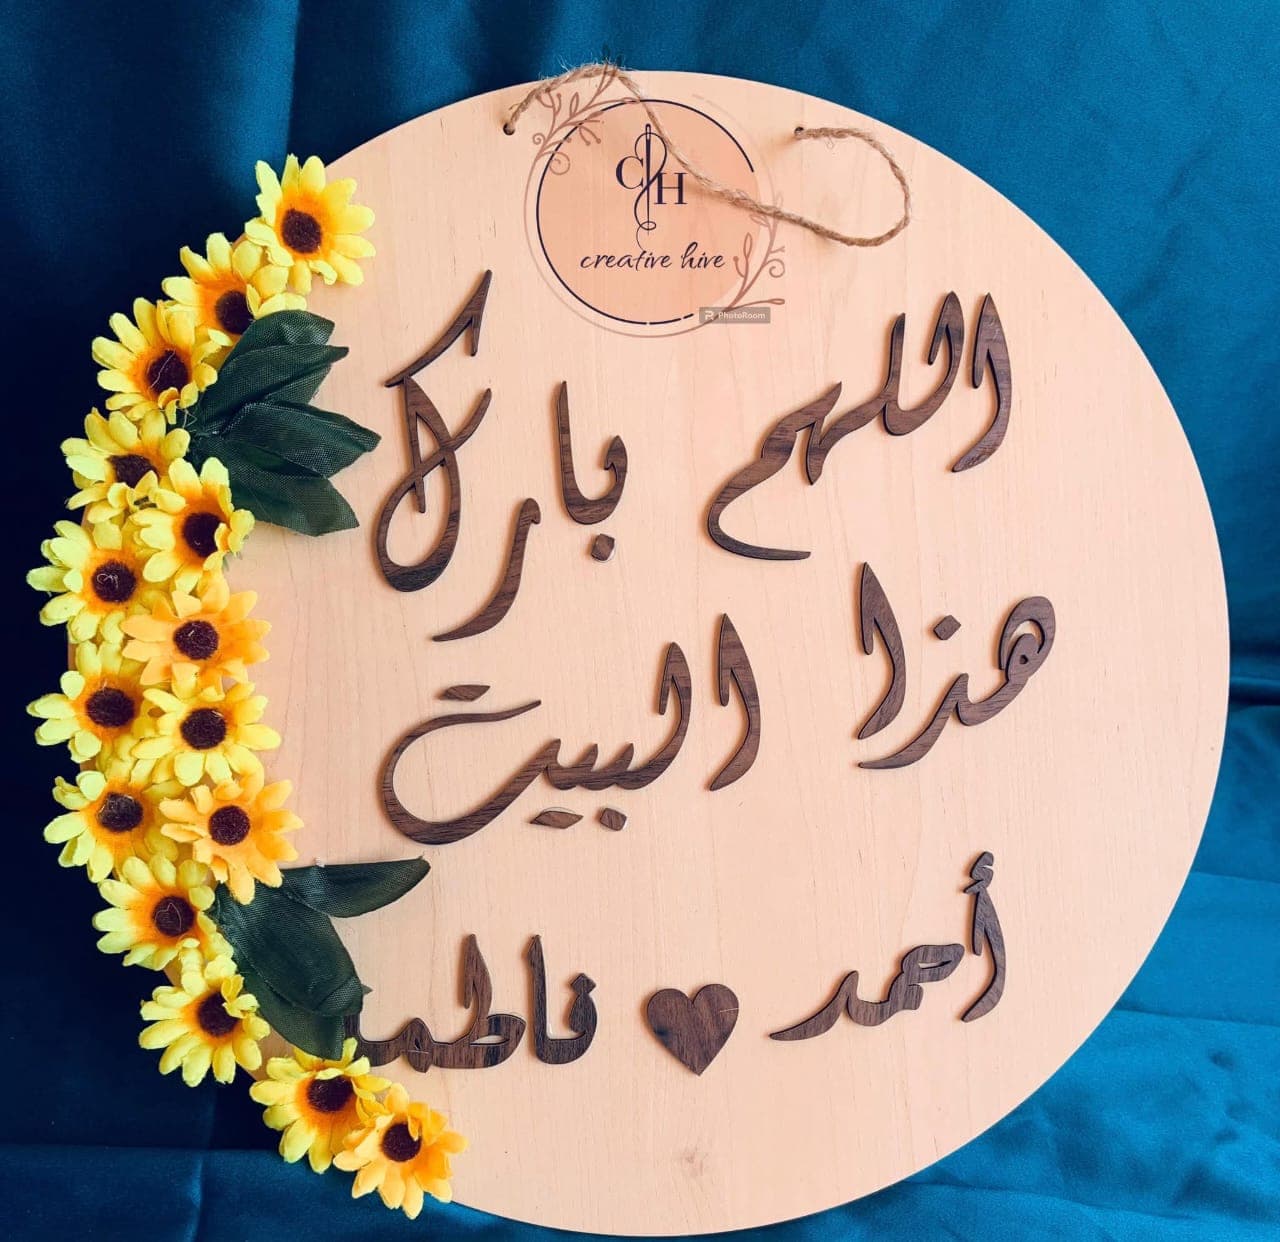 C H
creative hive
PhotoRoom
اللهم بارك
هذا البيت
أحمد ♥ فاطمة